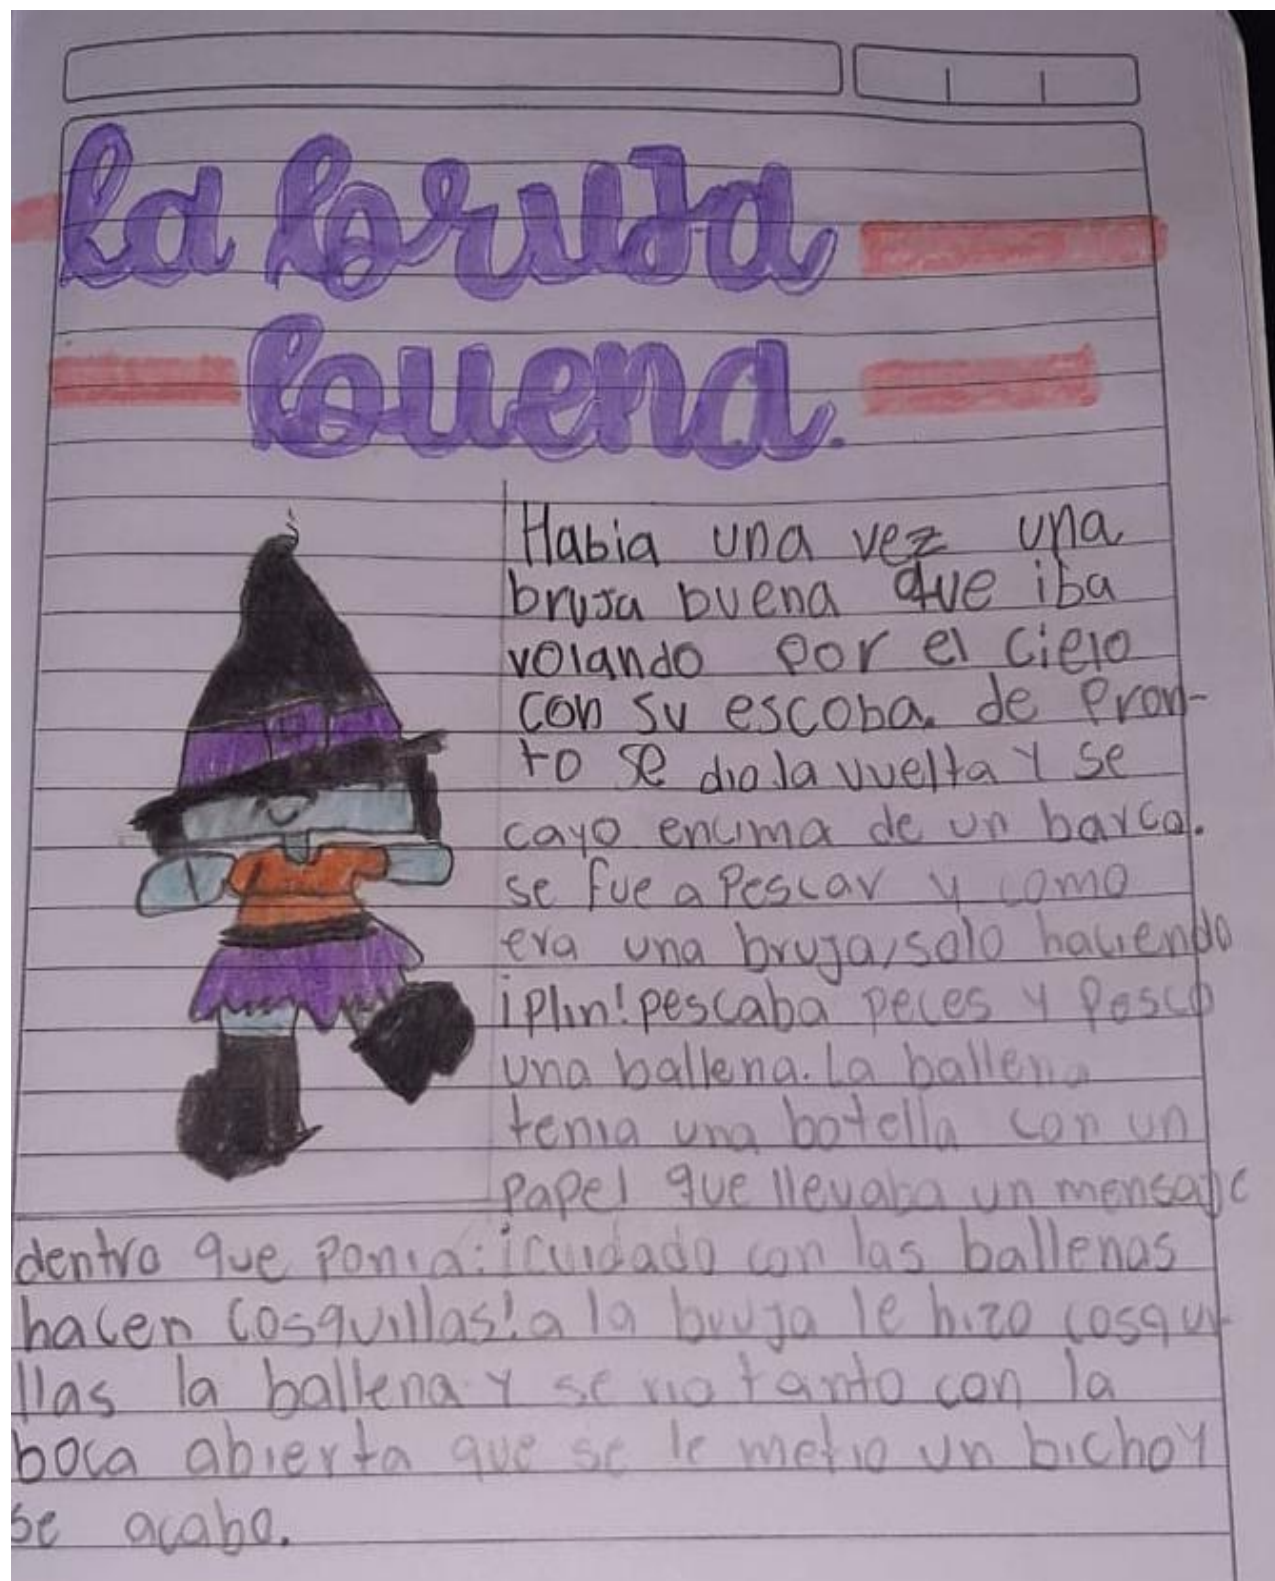 la bruja
buena.
Habia una vez una
bruja buena que iba
volando por el cielo
con su escoba. de pron-
to se dio la vuelta y se
cayo encima de un barco.
se fue a pescar y como
era una bruja, solo haciendo
¡plin! pescaba peces y pesco
una ballena. La ballena
tenia una botella con un
papel que llevaba un mensaje
dentro que ponia: ¡cuidado con las ballenas
hacen cosquillas! a la bruja le hizo cosqui-
llas la ballena y se rio tanto con la
boca abierta que se le metio un bicho y
se acabo.